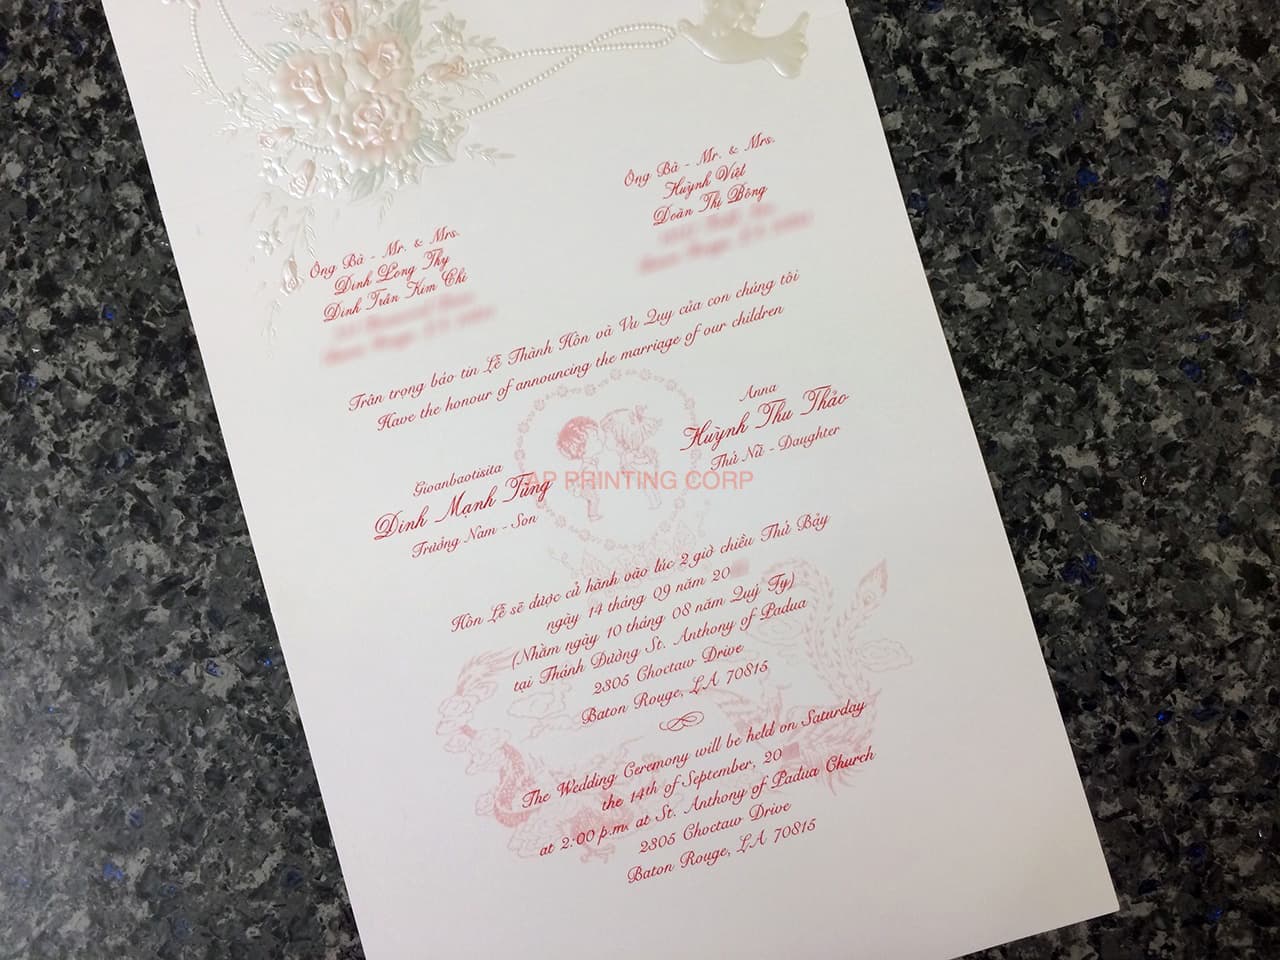 Ông Bà - Mr. & Mrs.
Đinh Long Thy
Đinh Trần Kim Chi
Ông Bà - Mr. & Mrs.
Huỳnh Việt
Đoàn Thị Bông
Trân trọng báo tin Lễ Thành Hôn và Vu Quy của con chúng tôi
Have the honour of announcing the marriage of our children
Gioanbaotisita
Đinh Mạnh Tùng
Trưởng Nam - Son
Anna
Huỳnh Thu Thảo
Thứ Nữ - Daughter
AP PRINTING CORP
Hôn Lễ sẽ được cử hành vào lúc 2 giờ chiều Thứ Bảy
ngày 14 tháng 09 năm 20
(Nhằm ngày 10 tháng 08 năm Quý Tỵ)
tại Thánh Đường St. Anthony of Padua
2305 Choctaw Drive
Baton Rouge, LA 70815
The Wedding Ceremony will be held on Saturday
the 14th of September, 20
at 2:00 p.m. at St. Anthony of Padua Church
2305 Choctaw Drive
Baton Rouge, LA 70815